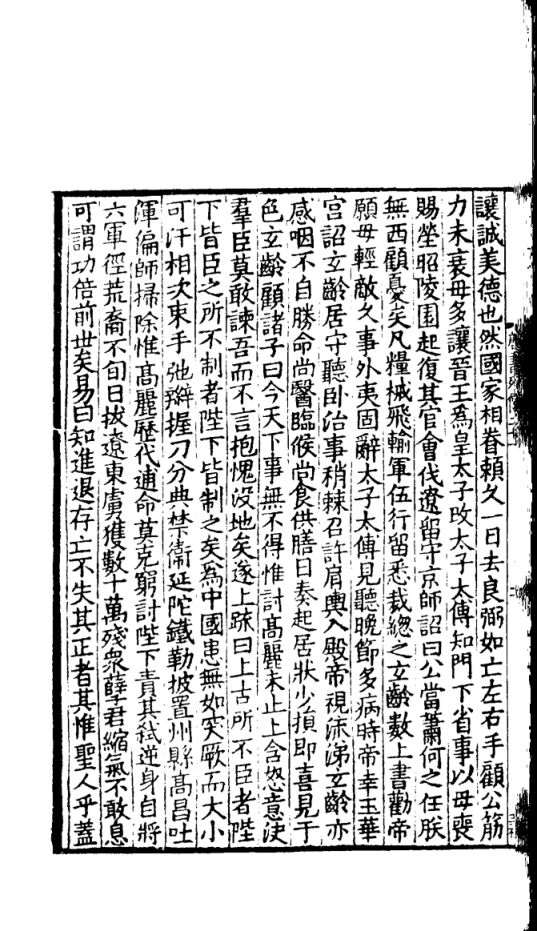 讓誠美德也然國家相眷賴久一日去良弼如亡左右手顧公筋
力未衰毋多讓晉王爲皇太子改太子太傅知門下省事以母喪
賜塋昭陵園起復其官會伐遼留守京師詔曰公當蕭何之任朕
無西顧憂矣凡糧械飛輸軍伍行留悉裁總之玄齡數上書勸帝
願毋輕敵久事外夷固辭太子太傅見聽晚節多病時帝幸玉華
宮詔玄齡居守聽卧治事稍棘召許肩輿入殿帝視流涕玄齡亦
感咽不自勝命尚醫臨候尚食供膳日奏起居狀少損即喜見于
色玄齡顧諸子曰今天下事無不得惟討髙麗未止上含怒意決
羣臣莫敢諫吾而不言抱愧没地矣遂上疏曰上古所不臣者陛
下皆臣之所不制者陛下皆制之矣爲中國患無如突厥而大小
可汗相次束手弛辮握刀分典禁衞延陀鐵勒披置州縣髙昌吐
渾偏師掃除惟髙麗歷代逋命莫克窮討陛下責其弑逆身自將
六軍徑荒裔不旬日拔遼東虜獲數十萬殘衆孽君縮氣不敢息
可謂功倍前世矣易曰知進退存亡不失其正者其惟聖人乎蓋